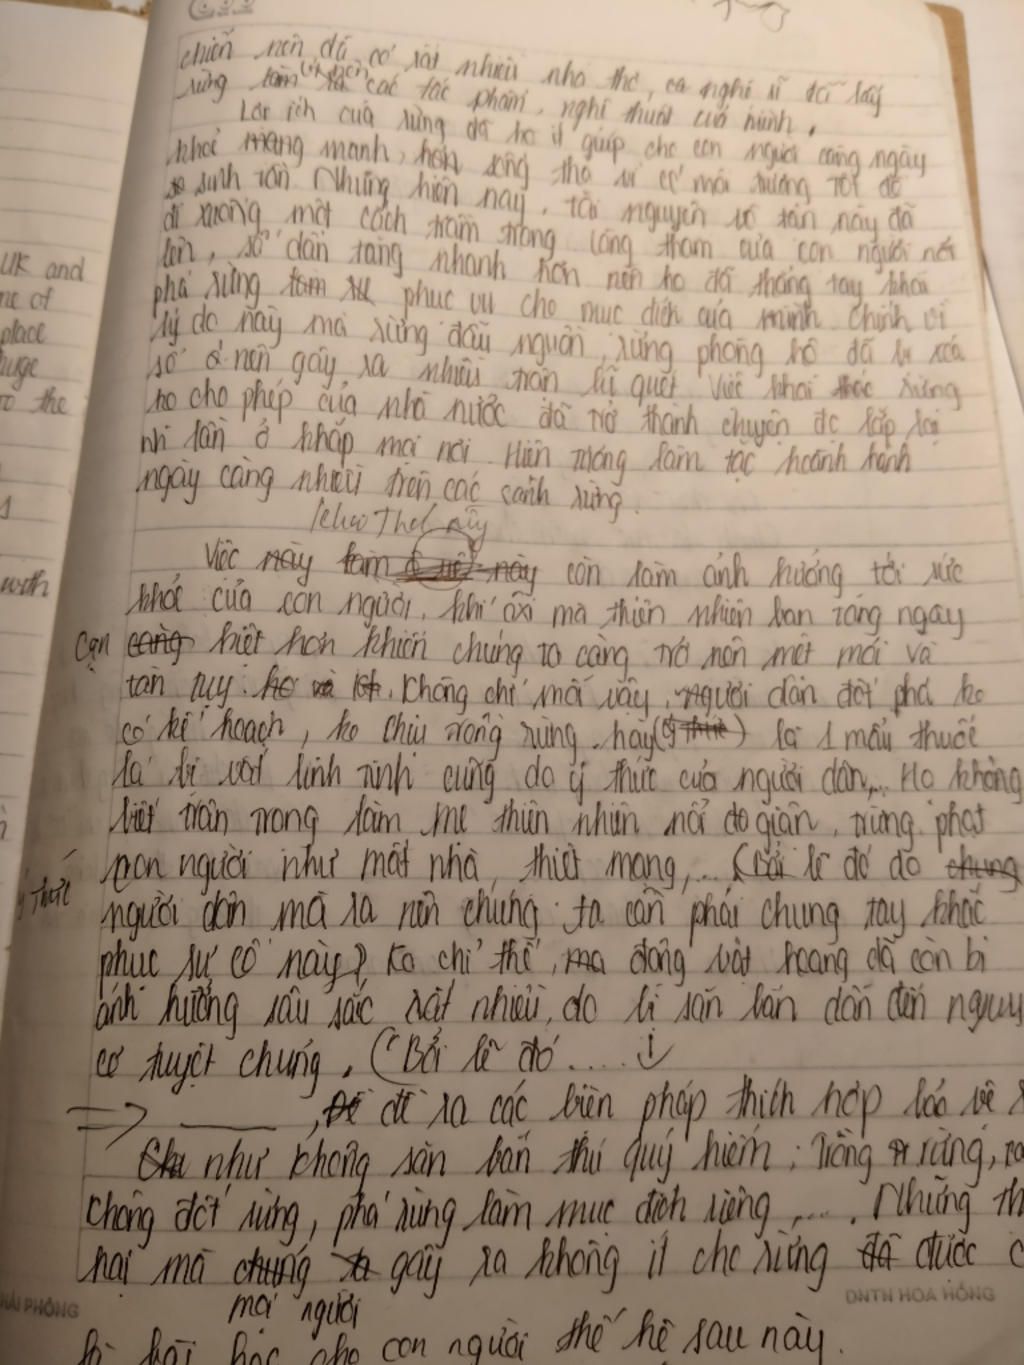 UK and
ne of
place
huge
to the
with
chiến nên đã có rất nhiều nhà thơ, ca nghệ sĩ đã lấy
rừng làm nên các tác phẩm, nghệ thuật của mình.
Lợi ích của rừng đã ko ít giúp cho con người càng ngày
khoẻ mạnh, hơn sống thọ vì có môi trường tốt để
sinh tồn. Nhưng hiện nay, tài nguyên vô tận này đã
đi xuống một cách trầm trọng lòng tham của con người nổi
lên, số dân tăng nhanh hơn nên họ đã thẳng tay khai
phá rừng phục vụ cho mục đích của mình. Chính vì
lý do này mà rừng đầu nguồn, rừng phòng hộ đã bị xoá
sổ nên gây ra nhiều trận lũ quét. Việc khai thác rừng
ko cho phép của nhà nước đã trở thành chuyện đc lặp lại
lần ở khắp mọi nơi. Hiện tượng lâm tặc hoành hành
ngày càng nhiều trên các cánh rừng.
Việc này còn làm ảnh hưởng tới sức
khoẻ của con người, khí ôxi mà thiên nhiên ban tặng ngày
cạn càng kiệt hơn khiến chúng ta càng trở nên mệt mỏi và
tàn tụy. Không chỉ mỗi vậy, người dân đốt phá ko
có kế hoạch, ko chịu trồng rừng hay (ý thức) là 1 mẩu thuốc
lá bị vứt linh tinh cũng do ý thức của người dân,... Họ không
biết trân trọng làm mẹ thiên nhiên nổi do giận, trừng phạt
ý thức con người như mất nhà, thiệt mạng,... (Bởi lẽ đó do chúng
người dân mà ra nên chúng ta cần phải chung tay khắc
phục sự cố này) Ko chỉ thế, mà động vật hoang dã còn bị
ảnh hưởng sâu sắc rất nhiều, do bị săn bắn dẫn đến nguy
cơ tuyệt chủng. (Bởi lẽ đó .... ↓
=> ____, Để đề ra các biện pháp thích hợp bảo vệ
như không săn bắn thú quý hiếm; Trồng rừng,
chống đốt rừng, phá rừng làm mục đích riêng,.... Những
hại mà chúng ta gây ra không ít cho rừng đã được
mọi người
bài học cho con người thế hệ sau này.
HẢI PHÒNG
DNTN HOA HỒNG